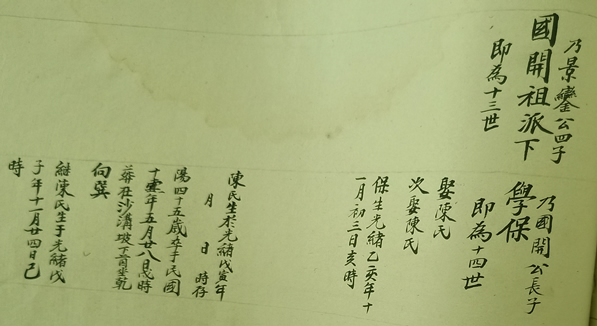 乃景鑾公四子
國開祖派下
即為十三世
乃國開公長子
學保
即為十四世
娶陳氏
次娶陳氏
保生光緒乙亥年十
一月初三日亥時
陳氏生於光緒戊寅年
月 日 時存
陽四十五歲卒于民國
十年五月廿八日戌時
葬在沙溝坡下首坐乾
向巽
繼陳氏生于光緒戊
子年十一月廿四日己
時